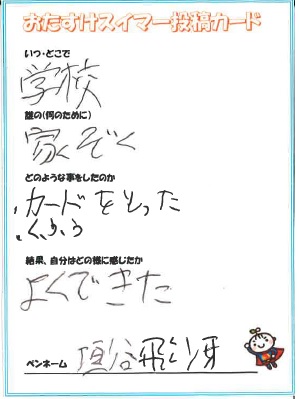 おたすけスイマー投稿カード
いつ・どこで
学校
誰の(何のために)
家ぞく
どのような事をしたのか
カードをとった
結果、自分はどの様に感じたか
よくできた
ペンネーム